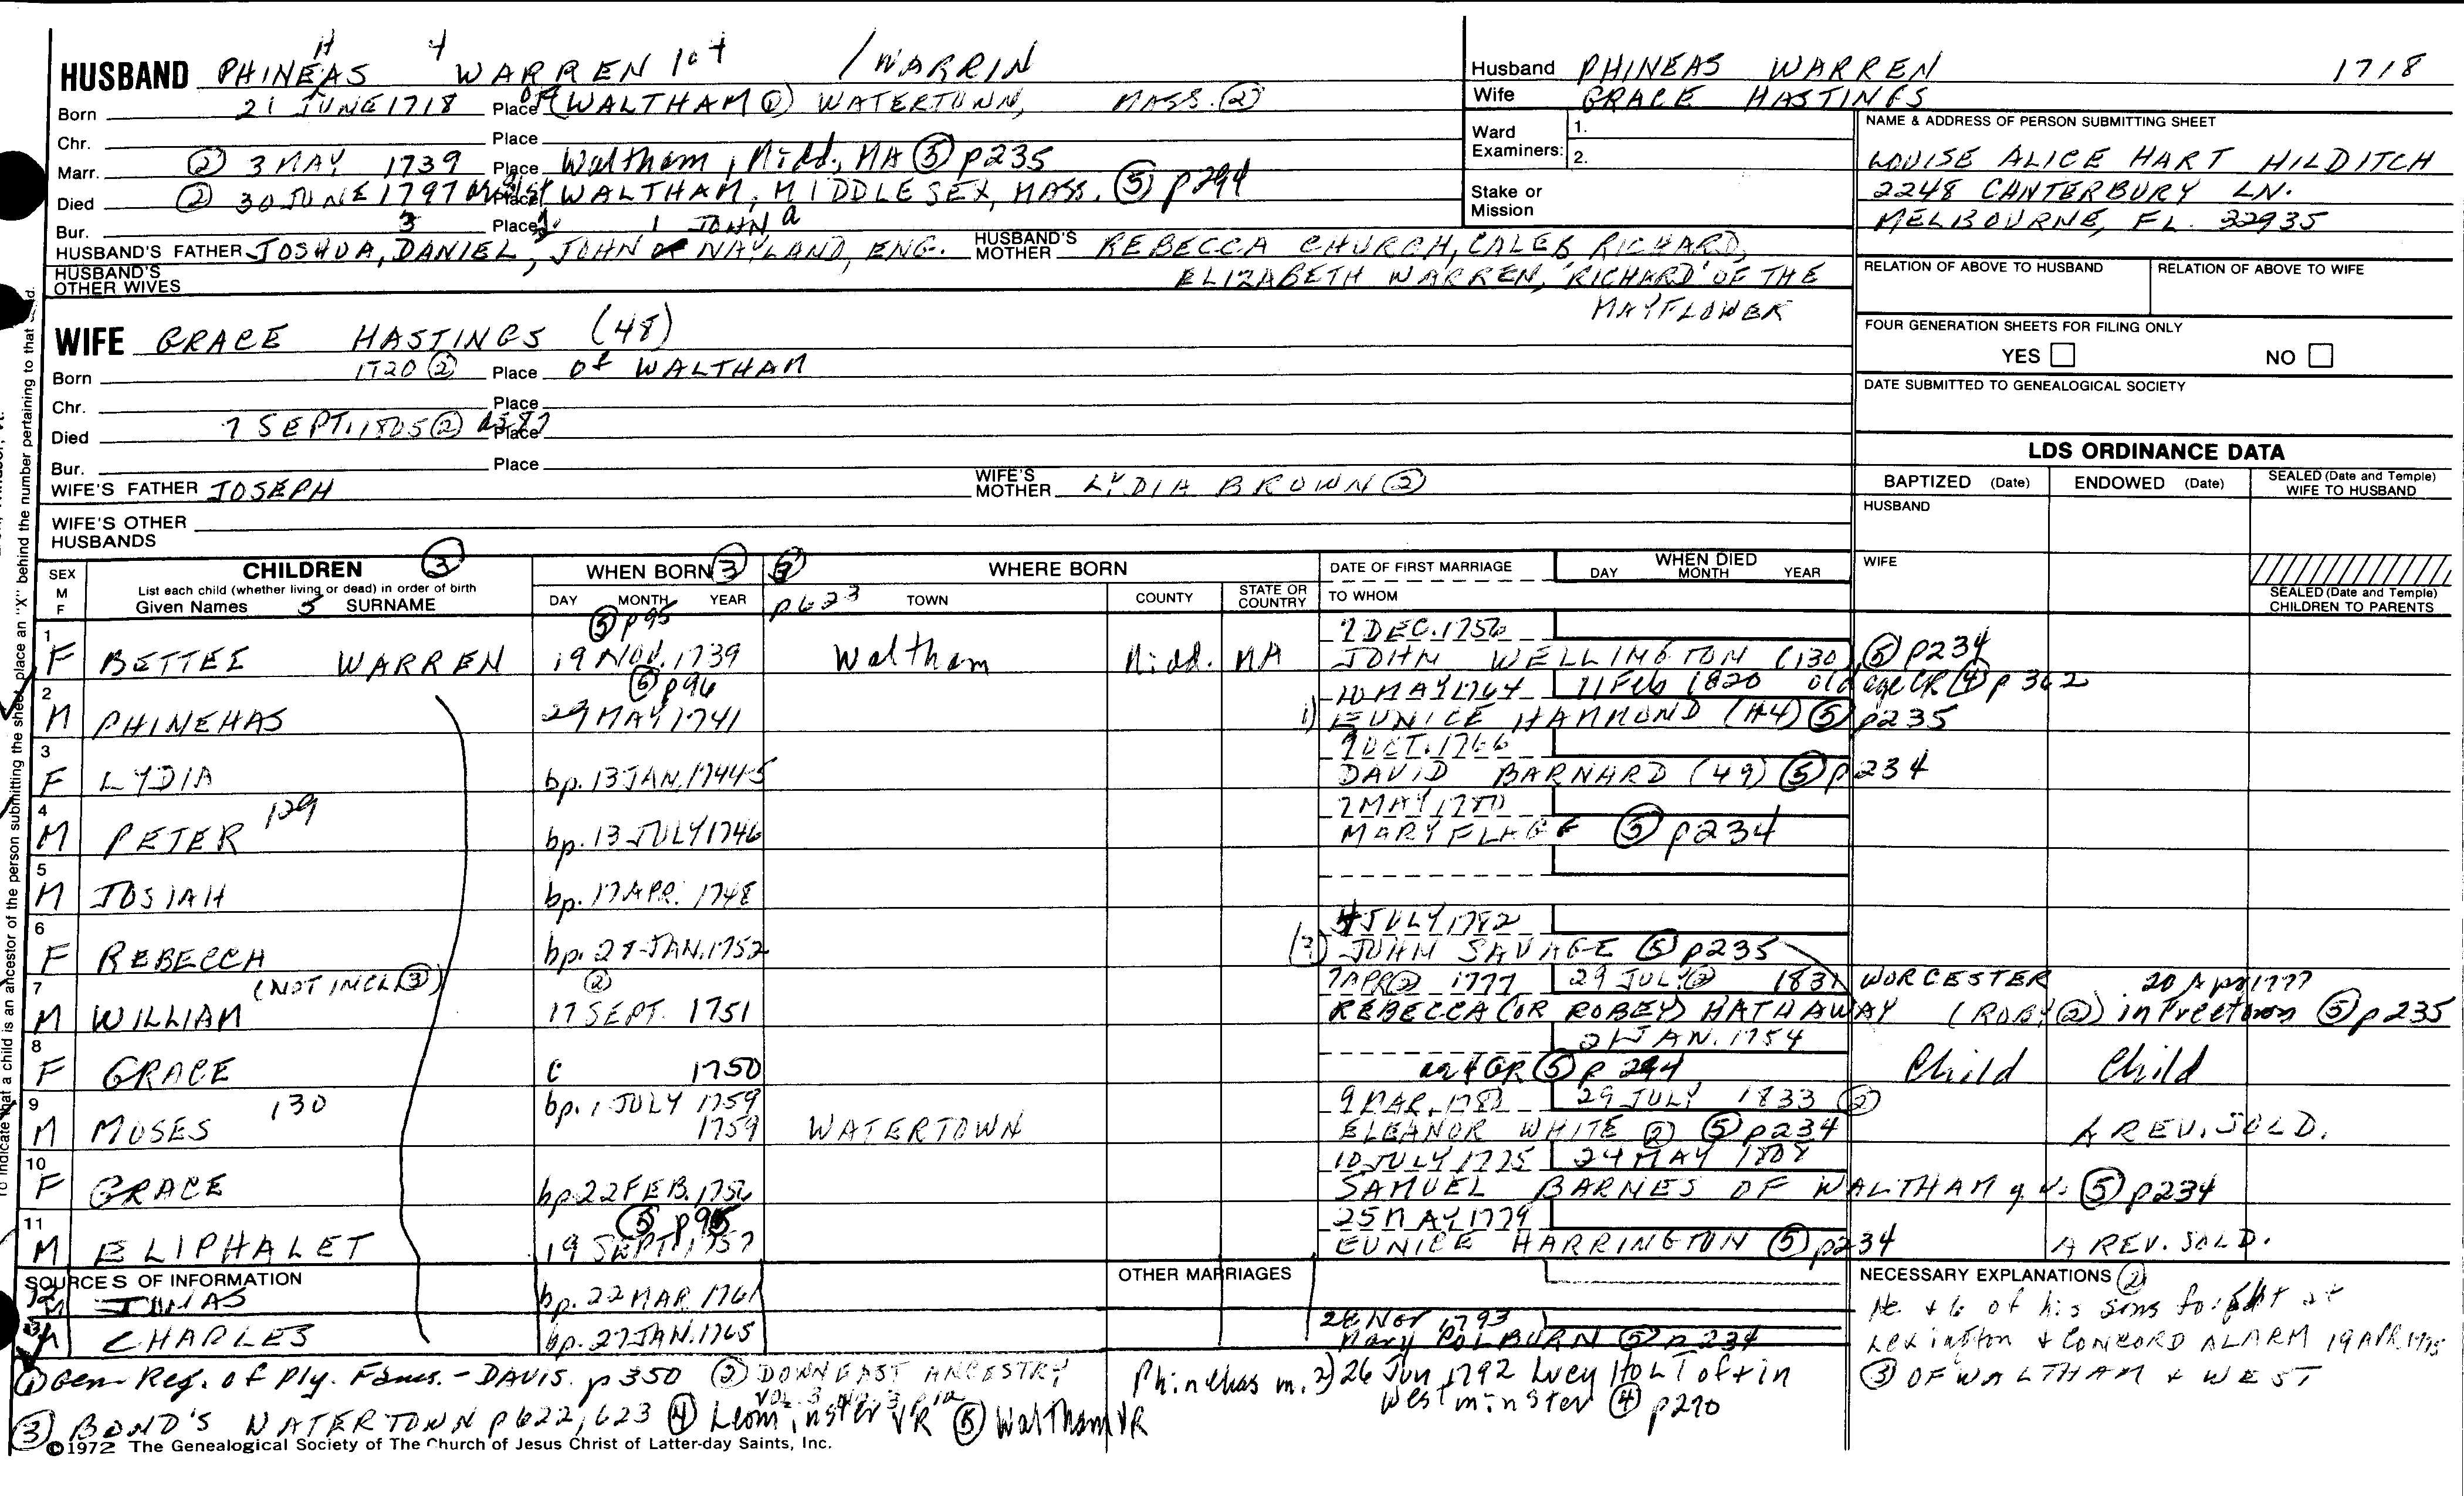 HUSBAND PHINEHAS WARREN 104 / WARRIN
Born 21 JUNE 1718 Place of (WALTHAM ①) WATERTOWN, MASS. ②
Chr. Place
Marr. ② 3 MAY 1739 Place Waltham, Midd., MA ⑤ p235
Died ② 30 JUNE 1797 Place WALTHAM, MIDDLESEX, MASS. ⑤ p294
Bur. Place
3 2. 1 JOHN a
HUSBAND'S FATHER JOSHUA, DANIEL, JOHN of NAYLAND, ENG. HUSBAND'S MOTHER REBECCA CHURCH, CALEB, RICHARD,
HUSBAND'S OTHER WIVES ELIZABETH WARREN, 'RICHARD' OF THE
MAYFLOWER
WIFE GRACE HASTINGS (48)
Born 1720 ② Place of WALTHAM
Chr. Place
Died 7 SEPT. 1805 ② Place
Bur. Place
WIFE'S FATHER JOSEPH WIFE'S MOTHER LYDIA BROWN ②
WIFE'S OTHER HUSBANDS
Husband PHINEAS WARREN 1718
Wife GRACE HASTINGS
Ward Examiners: 1.
2.
Stake or Mission
NAME & ADDRESS OF PERSON SUBMITTING SHEET
LOUISE ALICE HART HILDITCH
2248 CANTERBURY LN.
MELBOURNE, FL. 32935
RELATION OF ABOVE TO HUSBAND RELATION OF ABOVE TO WIFE
FOUR GENERATION SHEETS FOR FILING ONLY
YES NO
DATE SUBMITTED TO GENEALOGICAL SOCIETY
LDS ORDINANCE DATA
BAPTIZED (Date) ENDOWED (Date) SEALED (Date and Temple) WIFE TO HUSBAND
HUSBAND
WIFE
SEALED (Date and Temple) CHILDREN TO PARENTS
SEX M F CHILDREN ③ WHEN BORN ③ WHERE BORN DATE OF FIRST MARRIAGE WHEN DIED DAY MONTH YEAR
List each child (whether living or dead) in order of birth
Given Names 5 SURNAME DAY MONTH YEAR p623 TOWN COUNTY STATE OR COUNTRY TO WHOM
⑤ p95 7 DEC. 1756
1 F BETTEE WARREN 19 NOV. 1739 Waltham Midd. MA JOHN WELLINGTON (130) ⑤ p234
⑤ p96 10 MAY 1764 11 Feb 1820 old age CR ④ p 362
2 M PHINEHAS 29 MAY 1741 1) EUNICE HAMMOND (#4) ⑤ p235
9 OCT. 1766
3 F LYDIA bp. 13 JAN. 1744-5 DAVID BARNARD (49) ⑤ p234
2 MAY 1780
4 M PETER 129 bp. 13 JULY 1746 MARY FLAGG ⑤ p234
5 M JOSIAH bp. 17 APR. 1748
4 JULY 1782
6 F REBECCA bp. 28 JAN. 1752 (?) JOHN SAVAGE ⑤ p235
(NOT INCL ③) ② 7 APR ② 1777 29 JULY ② 1831 WORCESTER 20 Apr 1777
7 M WILLIAM 17 SEPT. 1751 REBECCA (OR ROBEY) HATHAWAY (ROBY ②) in Freetown ⑤ p235
21 JAN. 1754
8 F GRACE C 1750 ae 4 GR ⑤ p 294 Child Child
130 bp. 1 JULY 1759 9 MAR. 29 JULY 1833 ②
9 M MOSES 1759 WATERTOWN ELEANOR WHITE ② ⑤ p234 A REV. SOLD.
10 JULY 1775 24 MAY 1808
10 F GRACE bp 22 FEB. 1756 SAMUEL BARNES OF WALTHAM q.v. ⑤ p234
⑤ p95 25 MAY 1779
11 M ELIPHALET 19 SEPT. 1757 EUNICE HARRINGTON ⑤ p234 A REV. SOLD.
SOURCES OF INFORMATION OTHER MARRIAGES NECESSARY EXPLANATIONS ②
12 M JONAS bp. 22 MAR 1761
28 Nov 1793
M CHARLES bp. 27 JAN. 1765 Mary POLBURN ⑤ p 234
He + 6 of his sons fought at
Lexington + CONCORD ALARM 19 APR. 1775
③ OF WALTHAM & WEST
① Gen Reg. of Ply. Fams. - DAVIS. p 350 ② DOWNEAST ANCESTRY
VOL. 3 NO. 3
③ BOND'S WATERTOWN p622, 623 ④ Leominster VR ⑤ Waltham VR
Phinehas m. 2) 26 Jun 1792 Lucy HOLT of + in
Westminster ④ p270
©1972 The Genealogical Society of The Church of Jesus Christ of Latter-day Saints, Inc.
To indicate that a child is an ancestor of the person submitting the sheet, place an "X" behind the number pertaining to that